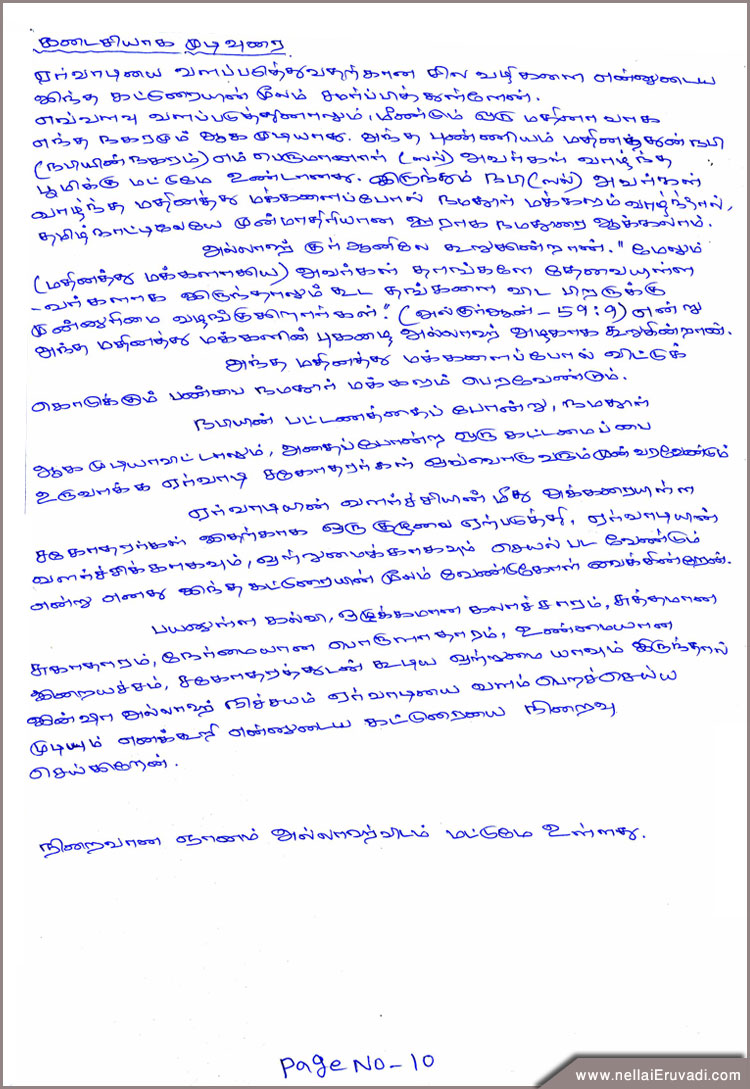 கடைசியாக முடிவுரை
ஏர்வாடியை வளப்படுத்துவதற்கான சில வழிகளை என்னுடைய
இந்த கட்டுரையின் மூலம் சமர்ப்பித்துள்ளேன்.
எவ்வளவு வளப்படுத்தினாலும், மீண்டும் ஒரு மதினா வாக
எந்த நகரமும் ஆக முடியாது. அந்த புண்ணியம் மதினத்துன் நபி
(நபியின் நகரம்) எம் பெருமானார் (ஸல்) அவர்கள் வாழ்ந்த
பூமிக்கு மட்டுமே உண்டானது. இருந்தும் நபி (ஸல்) அவர்கள்
வாழ்ந்த மதினத்து மக்களைப்போல் நமதூர் மக்களும் வாழ்ந்தால்,
தமிழ்நாட்டிலேயே முன்மாதிரியான ஊராக நமதூரை ஆக்கலாம்.
அல்லாஹ் குர்ஆனிலே கூறுகின்றான். "மேலும்
(மதினத்து மக்களாகிய) அவர்கள் தாங்களே தேவையுள்ள
-வர்களாக இருந்தாலும் கூட தங்களை விட பிறருக்கு
முன்னுரிமை வழங்குகிறார்கள்." (அல்குர்ஆன் - 59:9) என்று
அந்த மதினத்து மக்களின் புகழை அல்லாஹ் அழகாக கூறுகின்றான்.
அந்த மதினத்து மக்களைப்போல் விட்டுக்
கொடுக்கும் பண்பை நமதூர் மக்களும் பெறவேண்டும்.
நபியின் பட்டணத்தைப் போன்று, நமதூர்
ஆக முடியாவிட்டாலும், அதைப்போன்ற ஒரு கட்டமைப்பை
உருவாக்க ஏர்வாடி சகோதரர்கள் ஒவ்வொருவரும் முன் வரவேண்டும்
ஏர்வாடியின் வளர்ச்சியின் மீது அக்கறையுள்ள
சகோதரர்கள் இதற்காக ஒரு குழுவை ஏற்படுத்தி, ஏர்வாடியின்
வளர்ச்சிக்காகவும், ஒற்றுமைக்காகவும் செயல் பட வேண்டும்
என்று எனது இந்த கட்டுரையின் மூலம் வேண்டுகோள் வைக்கின்றேன்.
பயனுள்ள கல்வி, ஒழுக்கமான கலாச்சாரம், சுத்தமான
சுகாதாரம், நேர்மையான பொருளாதாரம், உண்மையான
இறையச்சம், சகோதரத்துடன் கூடிய ஒற்றுமை யாவும் இருந்தால்
இன்ஷா அல்லாஹ் நிச்சயம் ஏர்வாடியை வளம் பெறச்செய்ய
முடியும் எனக்கூறி என்னுடைய கட்டுரையை நிறைவு
செய்கிறேன்.
நிறைவான ஞானம் அல்லாஹ்விடம் மட்டுமே உள்ளது.
Page No - 10
www.nellaiEruvadi.com